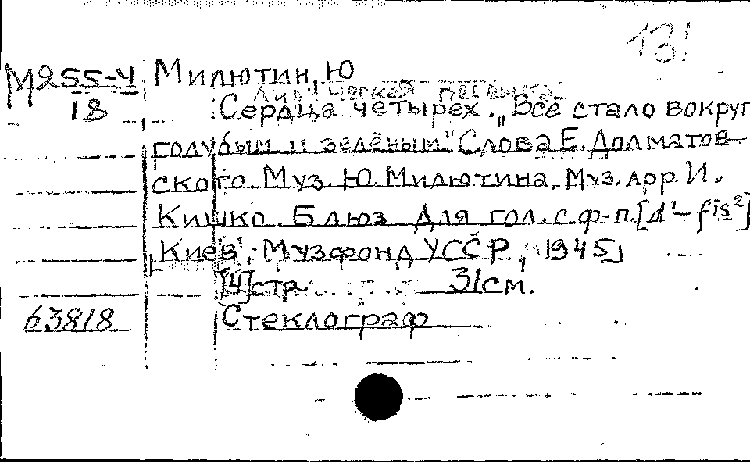 13!
М255-4 Милютин, Ю
18 Лирическая песенка
Сердца четырех. „Все стало вокруг
голубым и зелёным" Слова Е. Долматов-
ского. Муз. Ю. Милютина. Муз. арр. И.
Кишко. Блюз. Для гол. с ф-п. [d¹-fis²]
[Киев], Музфонд УССР, [1945]
[4] стр. 31 см.
63818 Стеклограф